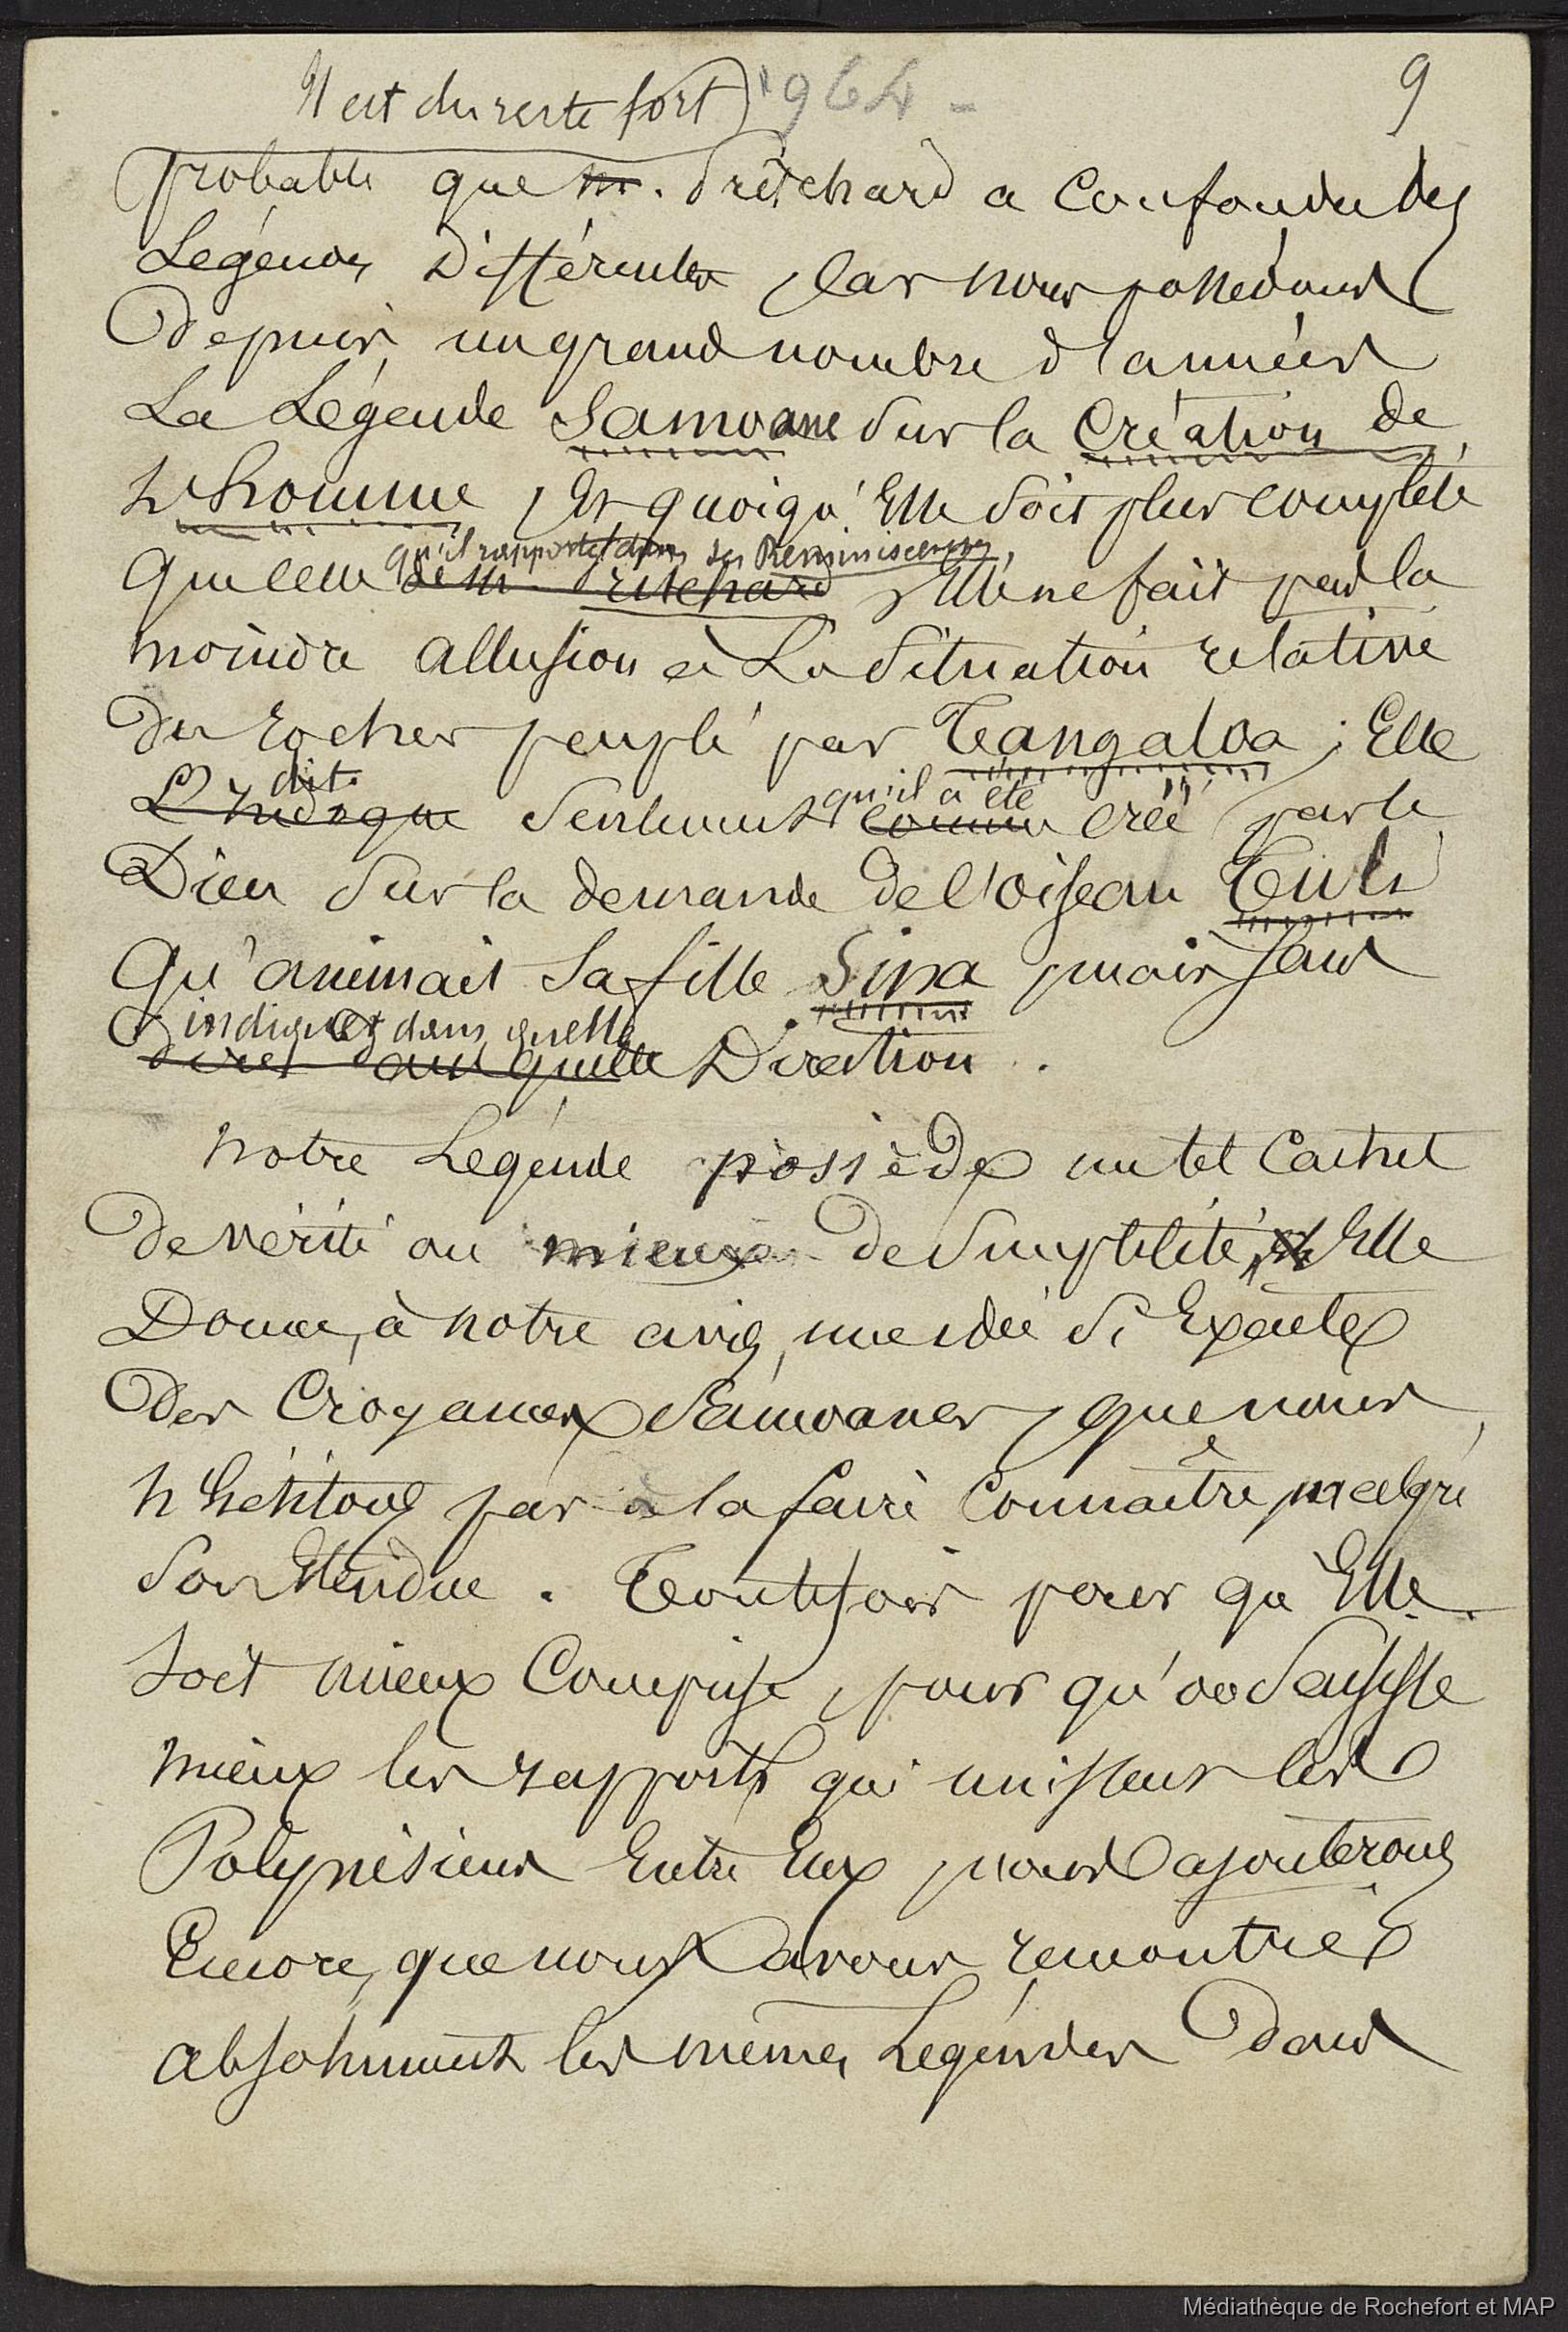 Il est du reste fort 964 - 9
probable que m. Pritchard a confondu des
Légendes différentes, Car nous possédons
depuis un grand nombre d'années
La Légende Samoane sur la Création de
L'homme, Et quoiqu'Elle soit plus complète
qu'il rapporte dans ses Reminiscences,
que celle de M. Pritchard, Elle ne fait pas la
moindre allusion à La Situation relative
du rocher peuplé par Tangaloa; Elle
dit qu'il a été
L'indique seulement comme créé par le
Dieu sur la demande de l'oiseau Tuli
qu'animait sa fille Sina, mais sans
indiquer dans quelle
dire dans quelle Direction.
Notre Légende possède un tel Cachet
de vérité ou mieux de simplicité, Elle
Donne, à notre avis, une idée si Exacte
des Croyances Samoanes, que nous
n'hésitons pas à la faire Connaître, malgré
son Etendue. Toutefois pour qu'Elle
soit mieux Comprise, pour qu'on saisisse
mieux les rapports qui unissent les
Polynésiens Entre Eux, nous ajouterons
Encore, que nous avons rencontré
absolument les mêmes Légendes dans
Médiathèque de Rochefort et MAP